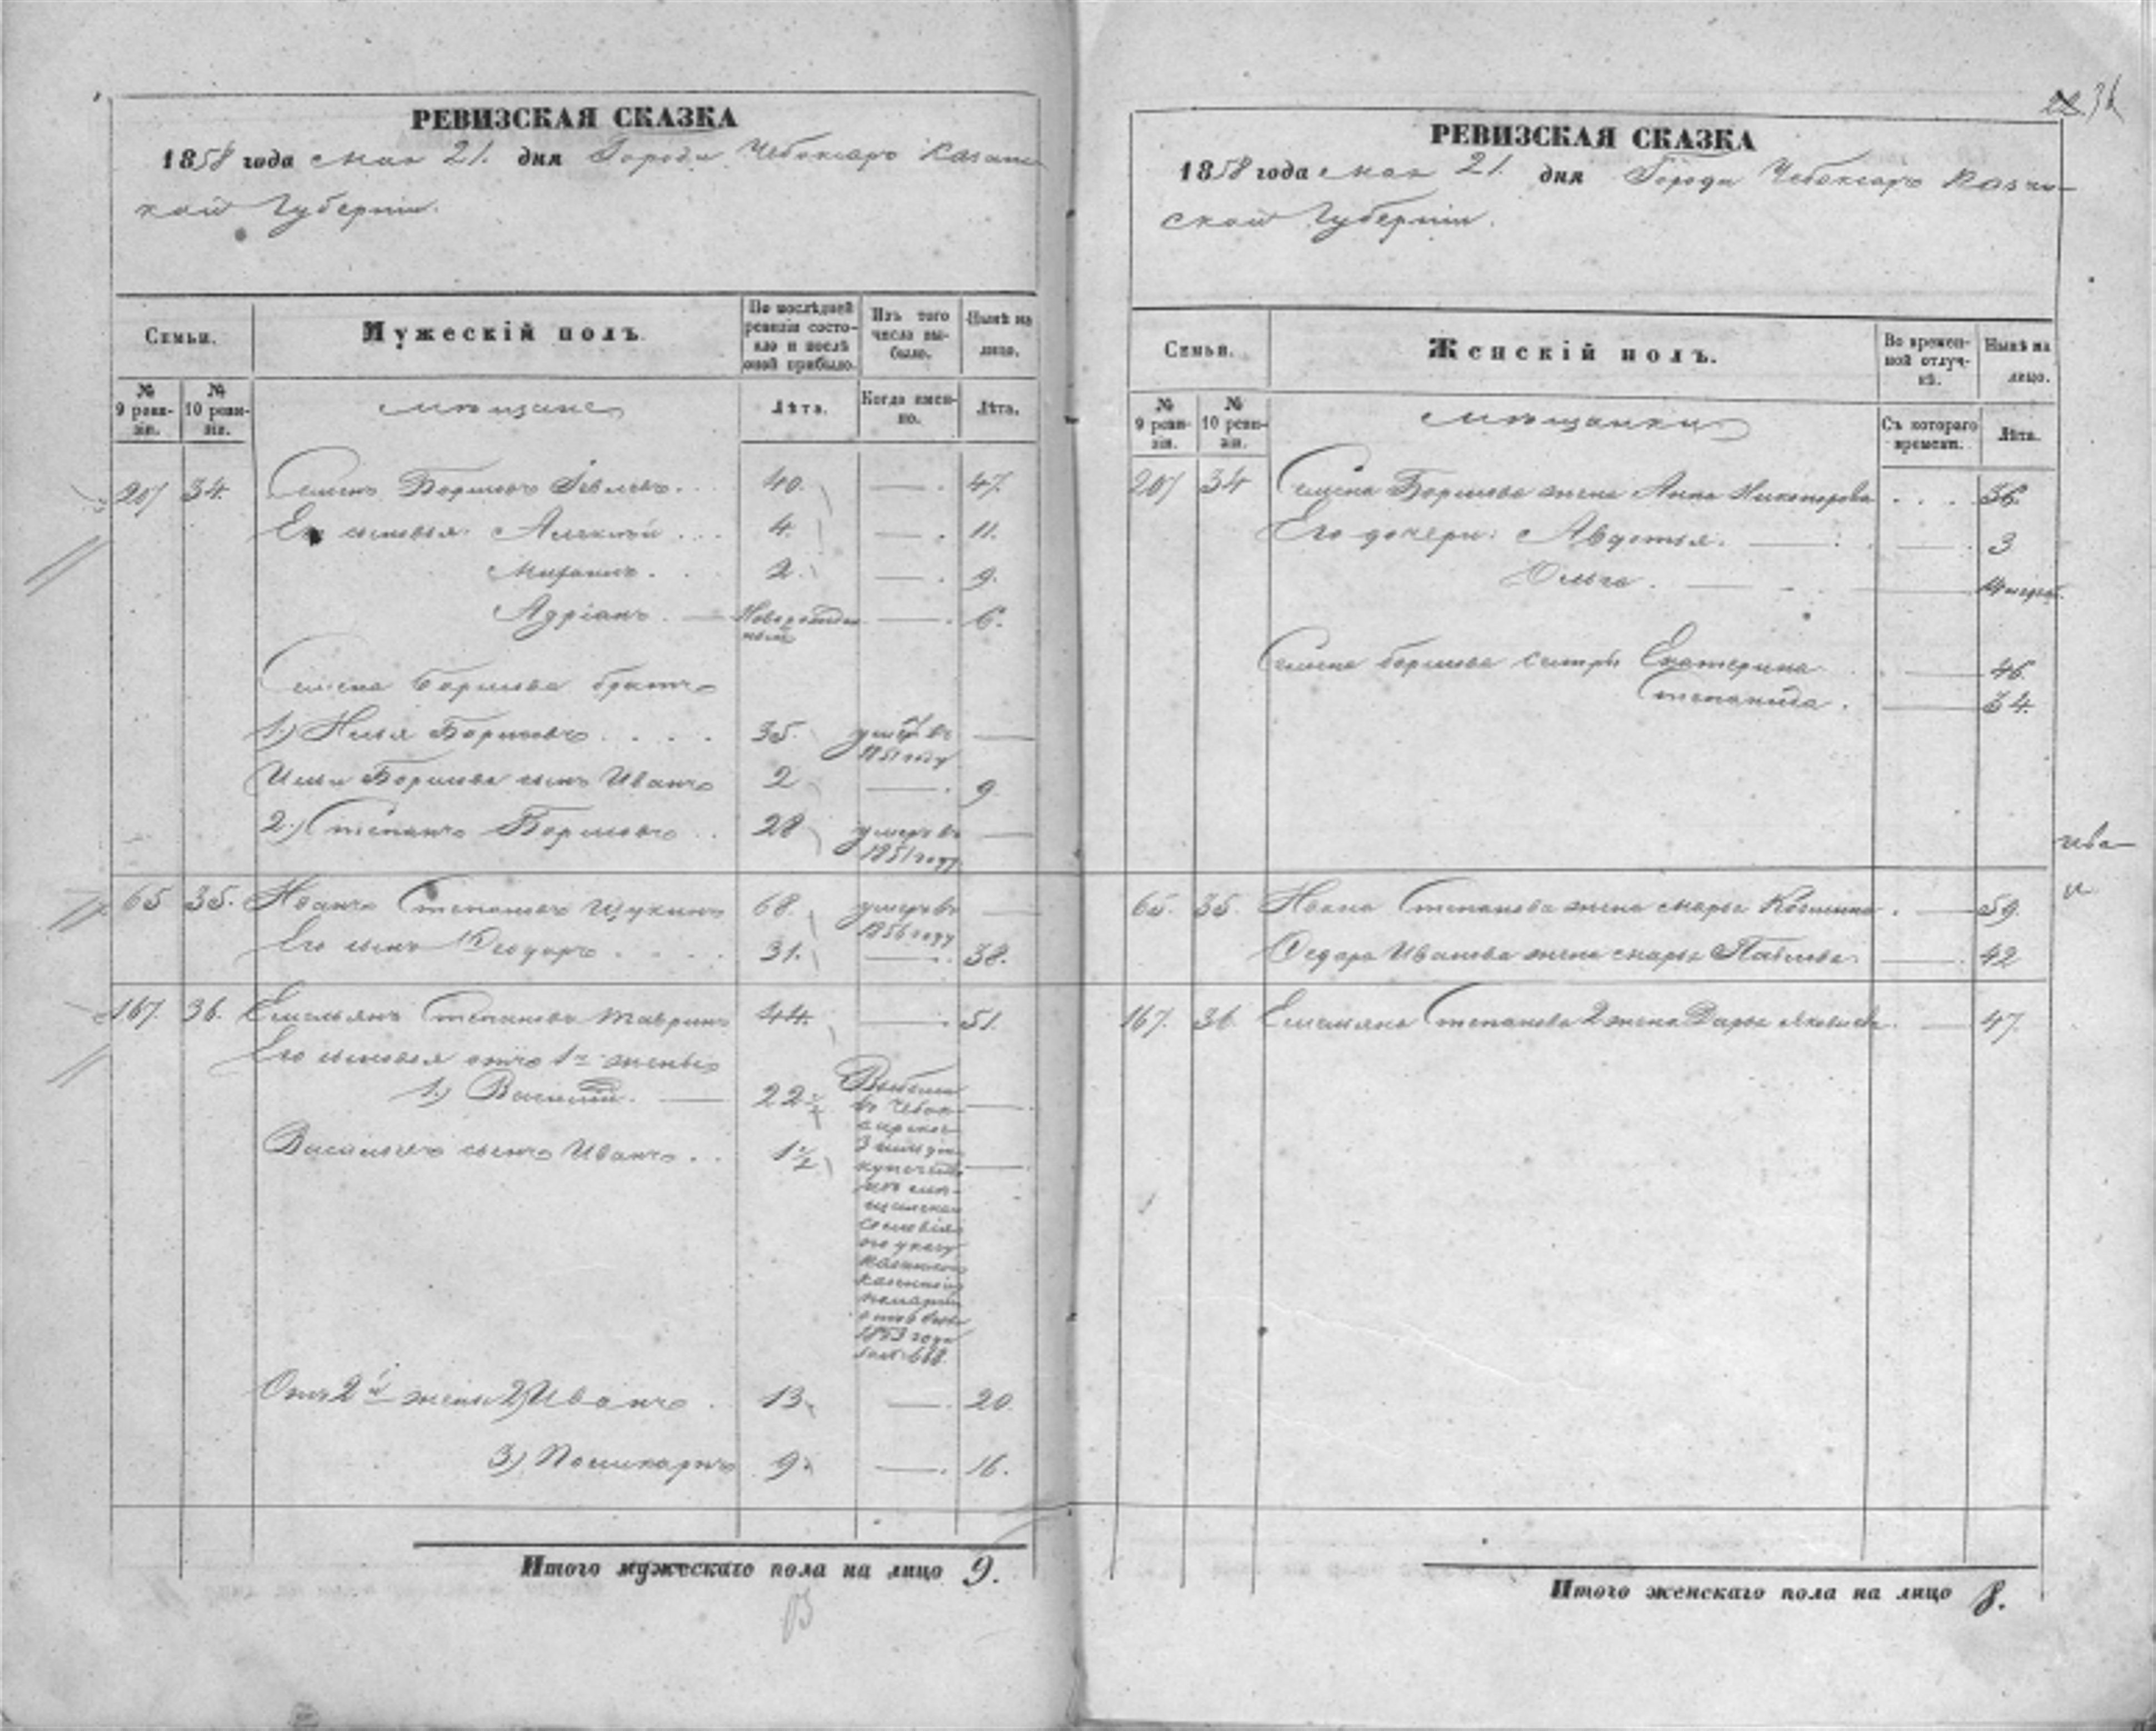 РЕВИЗСКАЯ СКАЗКА
1858 года мая 21. дня Города Чебоксаръ Казанс
кой Губерніи.
Семьи.
Мужескій полъ.
По послѣдней ревизіи состояло и послѣ оной прибыло.
Изъ того числа выбыло.
Нынѣ на лицо.
№ 9 ревизіи.
№ 10 ревизіи.
мѣщане
Лѣта.
Когда именно.
Лѣта.
207 34. Семенъ Борисовъ 40. 47.
Его сыновья: Алексѣй 4. 11.
2. 9.
Адріанъ. Новорожденный 6.
Семена Борисова братья
1.) Илья Борисовъ 35. умеръ въ 1851 году
Ильи Борисова сынъ Иванъ 2 9
2.) Степанъ Борисовъ 28 умеръ въ 1851 году
65 35. Иванъ Степановъ Щукинъ 68. умеръ въ 1856 году
Его сынъ Ѳеодоръ 31. 38.
167. 36. Емельянъ Степановъ Тавринъ 44. 51.
Его сыновья отъ 1й жены
1.) Василій. 22½
Васильевъ сынъ Иванъ 1½
въ Чебок-
3 гильдіи
купечество
сословія
по указу
Казанской
Казенной
палаты
1853 года
Отъ 2й жены 2) Иванъ 13 20.
3) Поликарпъ 9 16.
Итого мужескаго пола на лицо 9.
РЕВИЗСКАЯ СКАЗКА
1858 года мая 21. дня Города Чебоксаръ Казан-
ской Губерніи.
Семьи.
Женскій полъ.
Во временной отлучкѣ.
Нынѣ на лицо.
№ 9 ревизіи.
№ 10 ревизіи.
мѣщанки
Съ котораго времени.
Лѣта.
207 34 Семена Борисова жена Анна Никанорова 36.
Его дочери: Авдотья. 3
Ольга.
Семена Борисова сестры Екатерина 46.
Степанида. 34.
65. 35. Ивана Степанова жена Марья 59.
Ѳедора Иванова жена Марья Павлова 42
167. 36 Емельяна Степанова 2 жена Дарья Яковлева 47.
Итого женскаго пола на лицо 8.